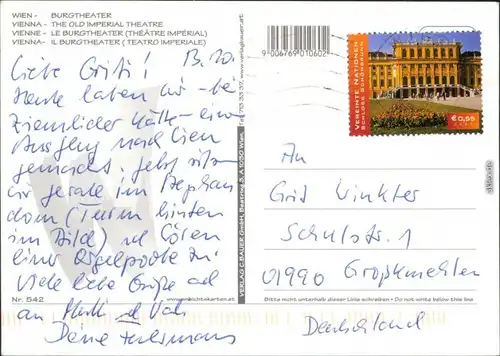 WIEN - BURGTHEATER
VIENNA - THE OLD IMPERIAL THEATRE
VIENNE - LE BURGTHEATER (THÉÂTRE IMPÉRIAL)
VIENNA - IL BURGTHEATER (TEATRO IMPERIALE)
9 006769 010602
Liebe Griti! 13.10.
Heute haben wir - bei
ziemlicher Kälte - ein
Ausflug nach Wien
gemacht. Jetzt sitzen
wir gerade im Stephans
dom (Turm hinten
im Bild) und hören
einer Orgelprobe zu.
Viele liebe Grüße
an und
Deine
Nr. 542
www.ansichtskarten.at
VERLAG C. BAUER GmbH, A 1030 Wien,
www.verlagbauer.at
VEREINTE NATIONEN
SCHLOSS SCHÖNBRUNN
€ 0,55
An
Grit Winkler
Schulstr. 1
01990 Großkmehlen
Deutschland
Bitte nicht unterhalb dieser Linie schreiben • Do not write below this line